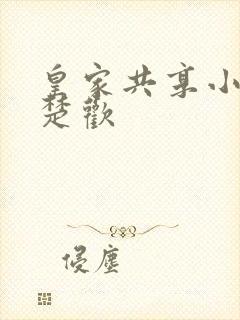 皇家共享小
楚歡
侵塵